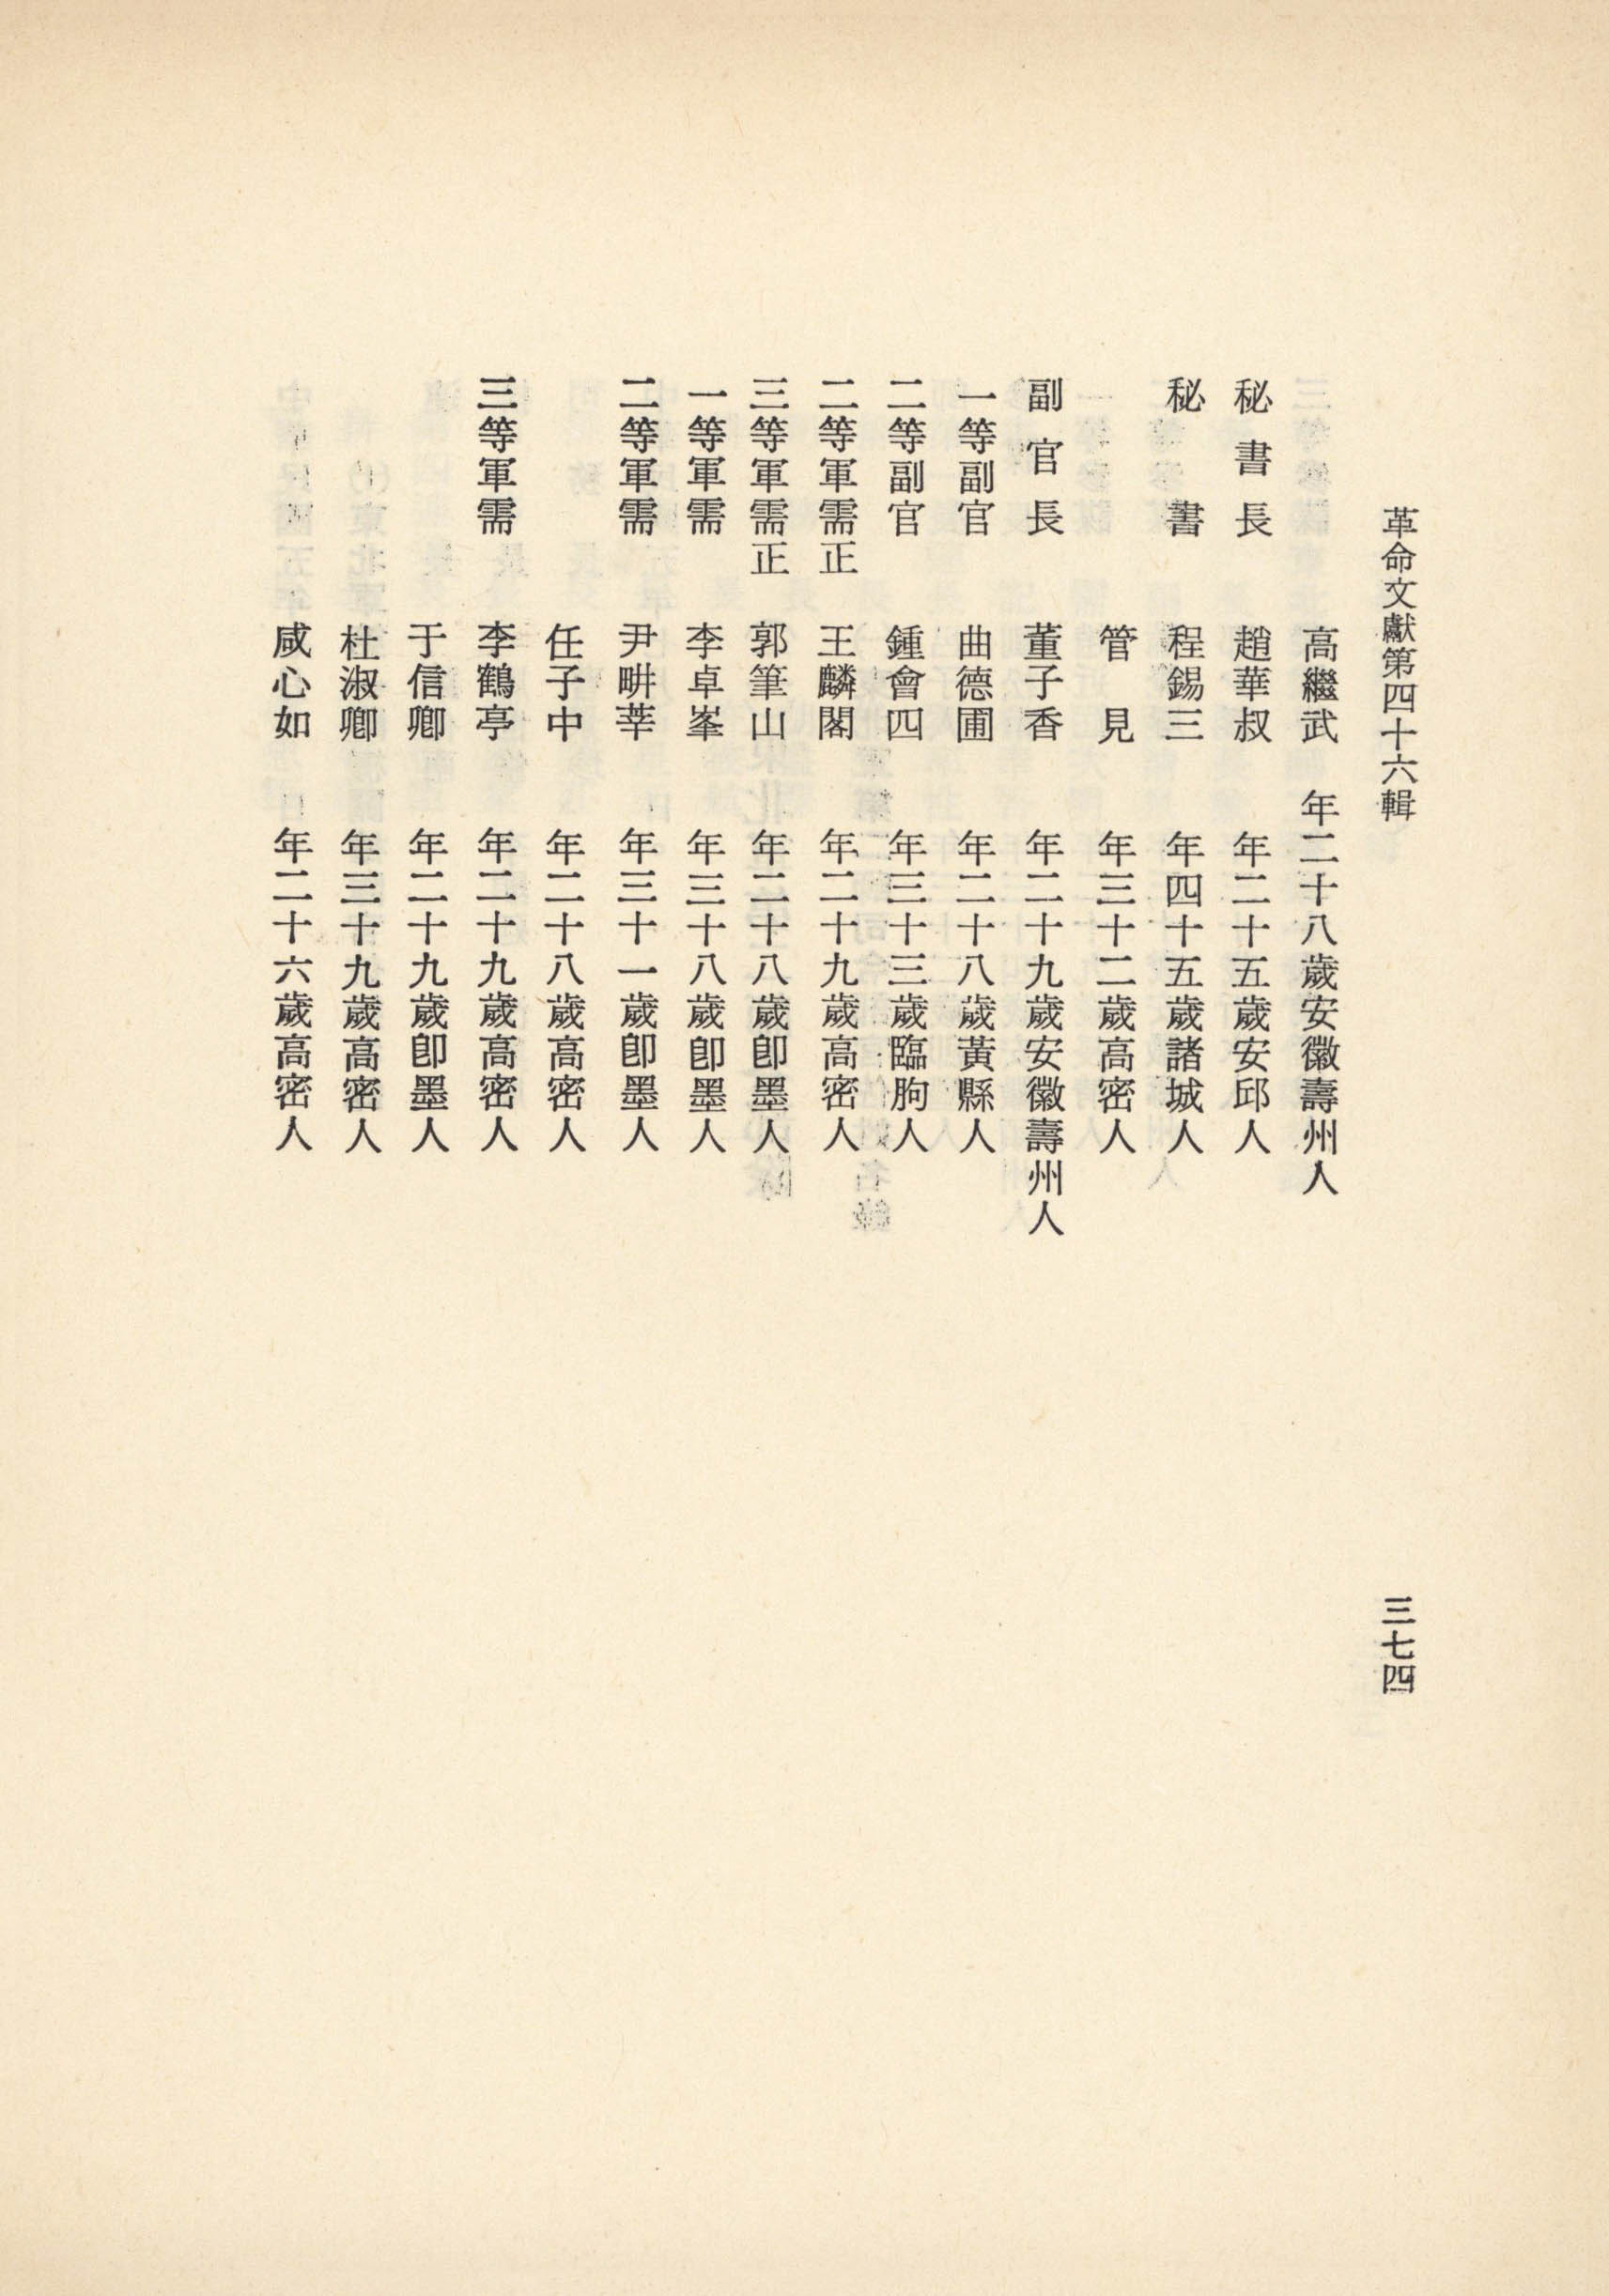 革命文獻第四十六輯
三七四
高繼武 年二十八歲安徽壽州人
秘書長 趙華叔 年二十五歲安邱人
秘書 程錫三 年四十五歲諸城人
管見 年三十二歲高密人
副官長 董子香 年二十九歲安徽壽州人
一等副官 曲德圃 年二十八歲黃縣人
二等副官 鍾會四 年三十三歲臨朐人
二等軍需正 王麟閣 年二十九歲高密人
三等軍需正 郭筆山 年二十八歲卽墨人
一等軍需 李卓峯 年三十八歲卽墨人
二等軍需 尹畊莘 年三十一歲卽墨人
任子中 年二十八歲高密人
三等軍需 李鶴亭 年二十九歲高密人
于信卿 年二十九歲卽墨人
杜淑卿 年三十九歲高密人
咸心如 年二十六歲高密人